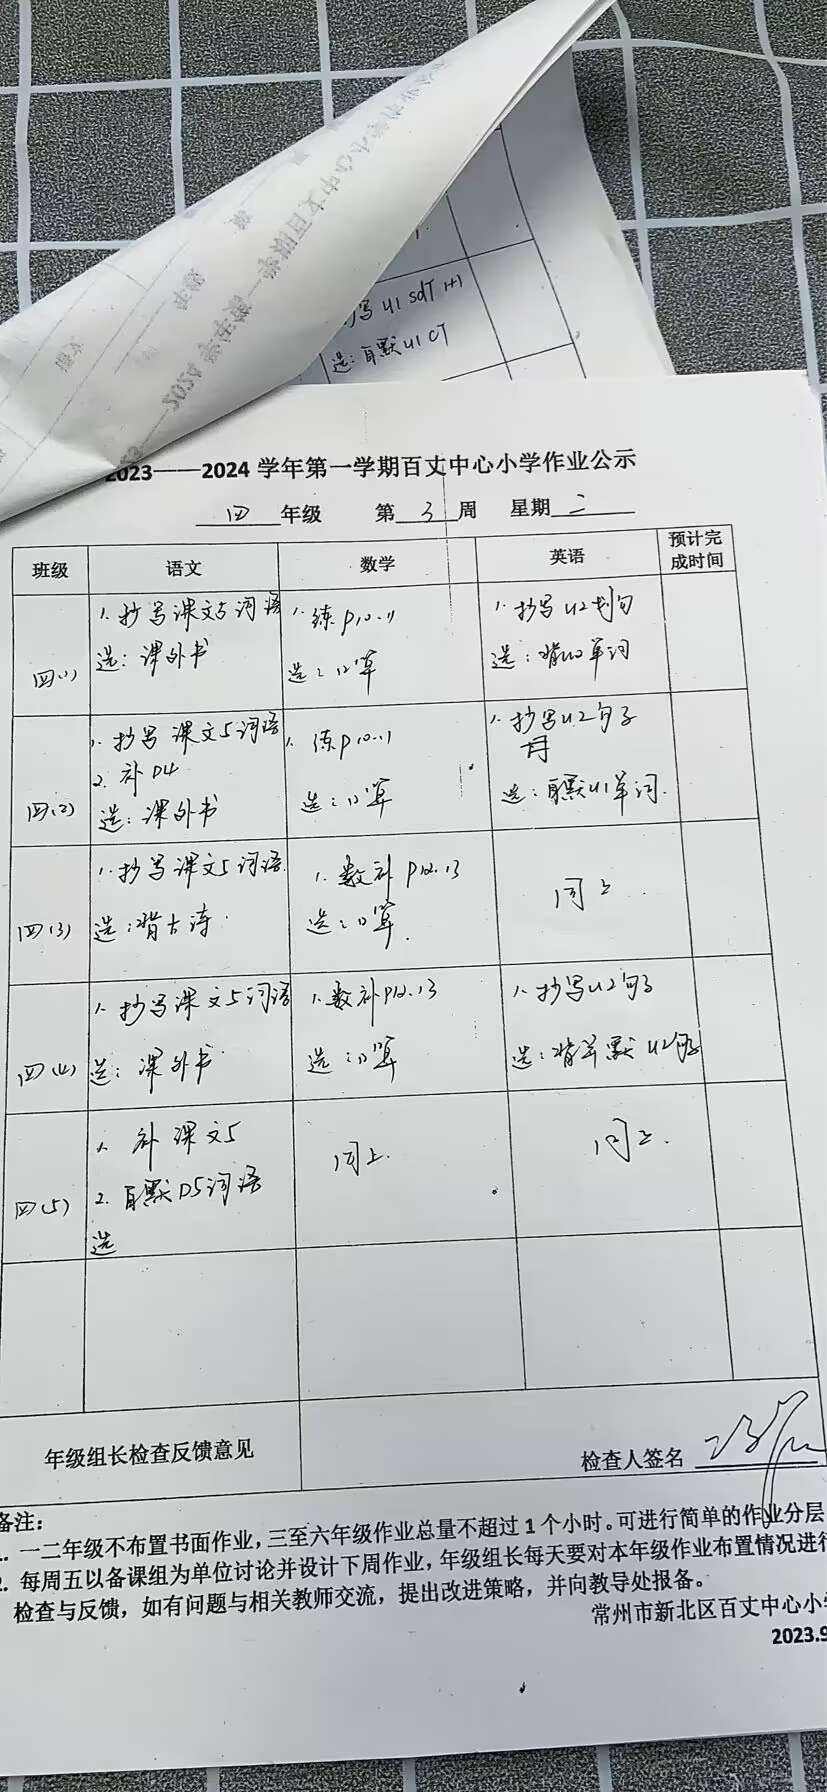 写 U1 sdT 1+1
选：自默 U1 CT
2023——2024 学年第一学期百丈中心小学作业公示
四 年级 第 3 周 星期 二
班级 语文 数学 英语 预计完成时间
四（1）
1. 抄写课文5词语
选：课外书
1. 练P10-11
选：口算
1. 抄写U2划句
选：背U2单词
四（2）
1. 抄写课文5词语
2. 补P4
选：课外书
1. 练P10-11
选：口算
1. 抄写U2句子
选：自默U1单词.
四（3）
1. 抄写课文5词语.
选：背古诗.
1. 数补P12.13
选：口算.
同上
四（4）
1. 抄写课文5词语
选：课外书
1. 数补P12.13
选：口算
1. 抄写U2句子
选：背默U2句子
四（5）
1. 补课文5
2. 自默P5词语
选
同上.
同上.
年级组长检查反馈意见
检查人签名
备注：
1. 一二年级不布置书面作业，三至六年级作业总量不超过1个小时。可进行简单的作业分层
2. 每周五以备课组为单位讨论并设计下周作业，年级组长每天要对本年级作业布置情况进行
检查与反馈，如有问题与相关教师交流，提出改进策略，并向教导处报备。
常州市新北区百丈中心小学
2023.9